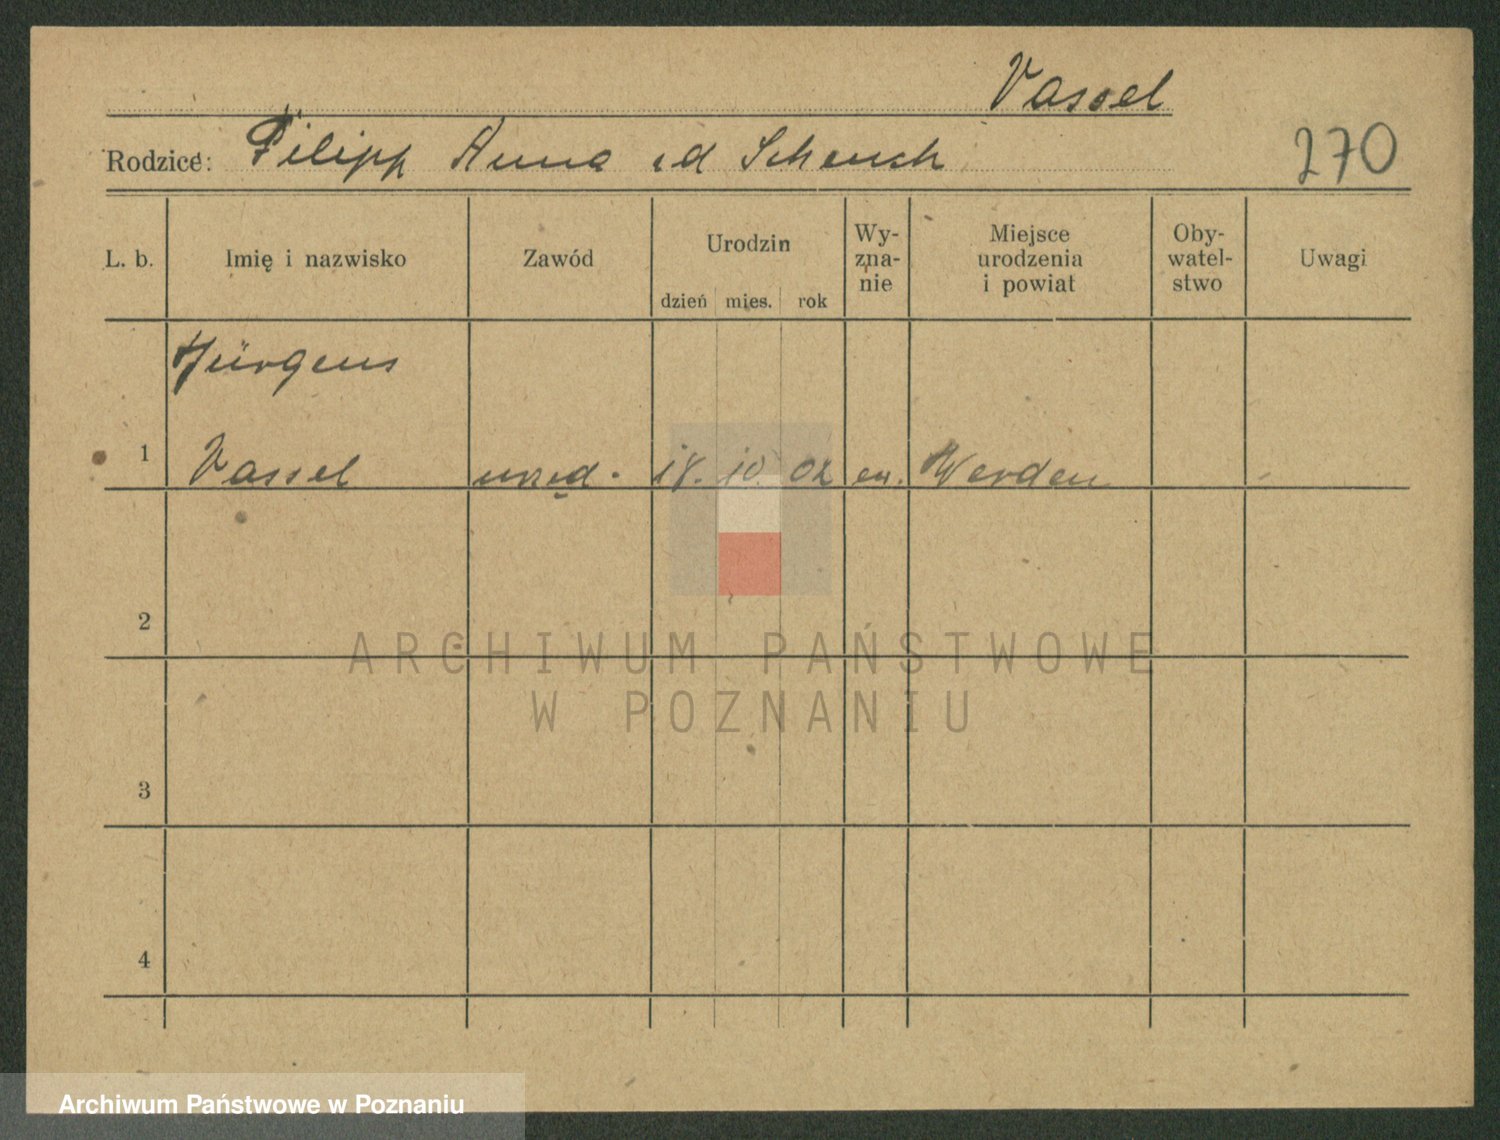 Vassel
Rodzice: Filipp Anna id Schench
270
L. b. Imię i nazwisko Zawód Urodzin dzień mies. rok Wy-zna-nie Miejsce urodzenia i powiat Oby-watel-stwo Uwagi
Jürgens
1 Vassel urzęd. 18. 10. 02 ew. Werden -
2
ARCHIWUM PAŃSTWOWE
W POZNANIU
3
4
Archiwum Państwowe w Poznaniu